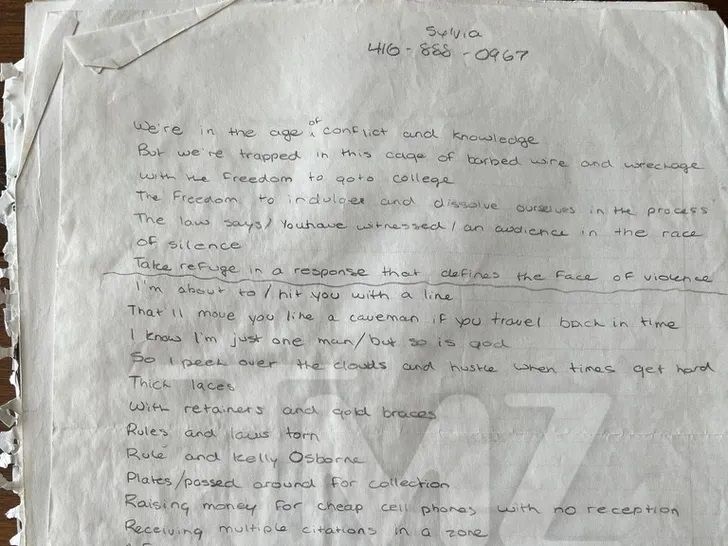 Sylvia
416-888-0967
We're in the age of conflict and knowledge
But we're trapped in this cage of barbed wire and wreckage
with the freedom to goto college
The Freedom to indulge and dissolve ourselves in the process
The law says/ Youhave witnessed / an audience in the race
of silence
Take refuge in a response that defines the face of violence
I'm about to / hit you with a line
That'll move you like a caveman if you travel back in time
I know I'm just one man/but so is god
So I peek over the clouds and hustle when times get hard
Thick laces
with retainers and gold braces
Rules and laws torn
Rule and Kelly Osborne
Plates/passed around for collection
Raising money for cheap cell phones with no reception
Receiving multiple citations in a zone
TMZ